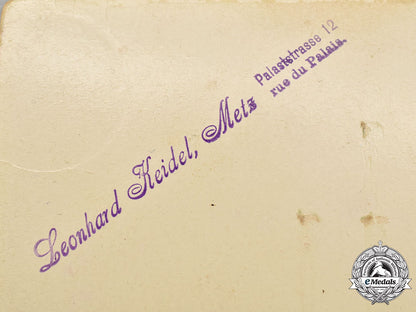 Leonhard Keidel, Metz
Palaststrasse 12
rue du Palais.
eMedals